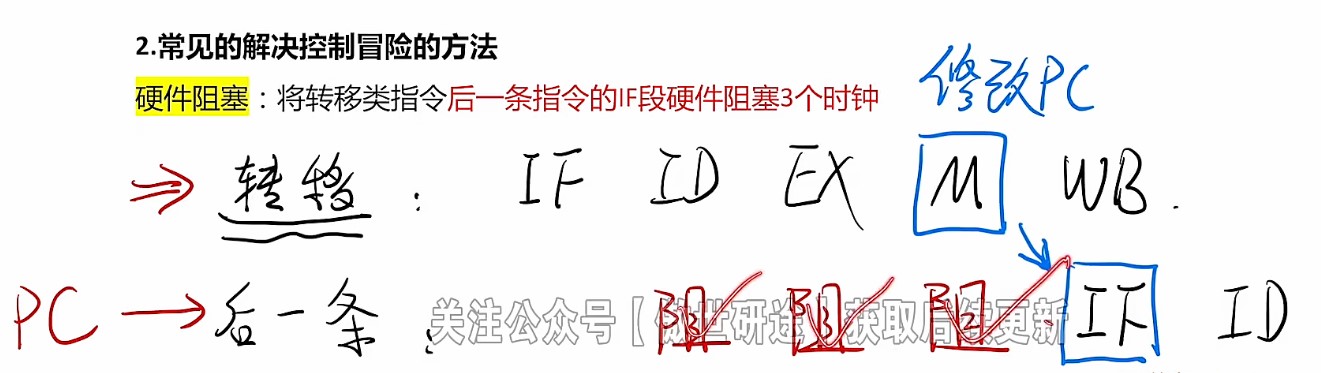 2.常见的解决控制冒险的方法
硬件阻塞：将转移类指令后一条指令的IF段硬件阻塞3个时钟
修改PC
转移： IF ID EX M WB.
PC → 后一条： 阻 阻 阻 IF ID
关注公众号【 世研途】获取后续更新